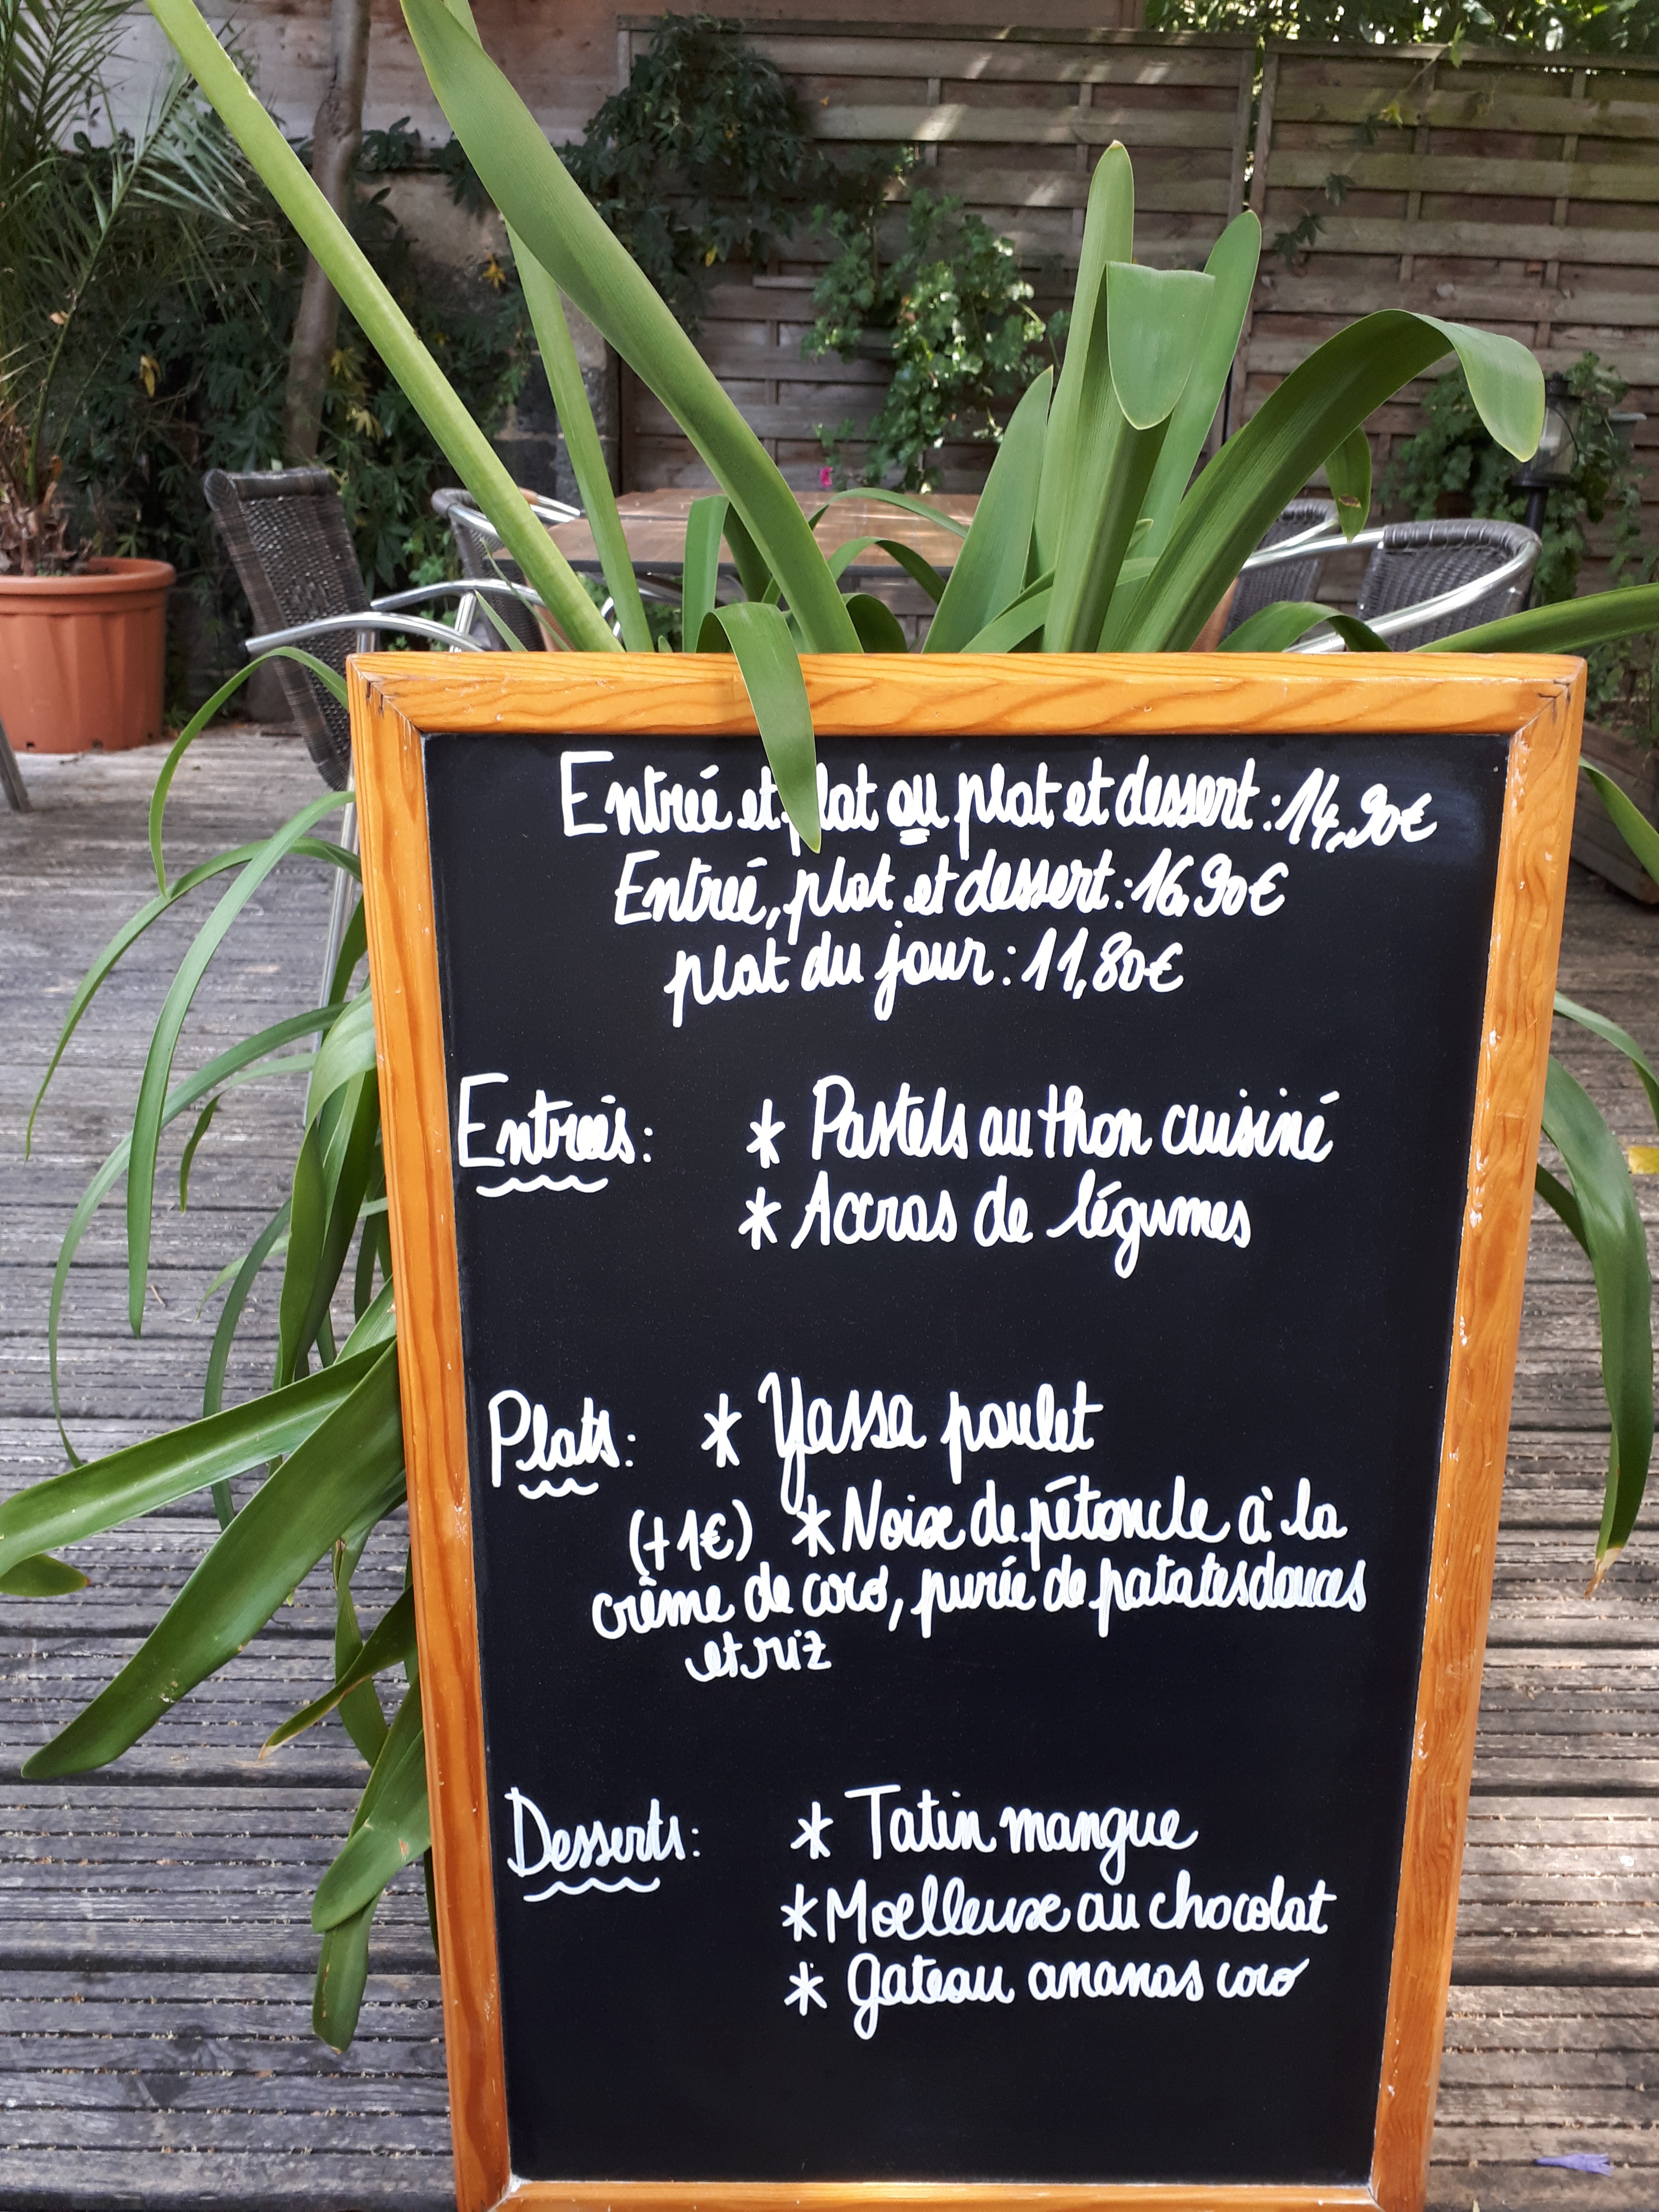 Entrée et plat ou plat et dessert : 14,90€
Entrée, plat et dessert : 16,90€
plat du jour : 11,80€
Entrées : * Pastels au thon cuisiné
* Accras de légumes
Plats : * Yassa poulet
(+1€) * Noix de pétoncle à la
crème de coco, purée de patates douces
et riz
Desserts : * Tatin mangue
* Moelleux au chocolat
* Gateau ananas coco